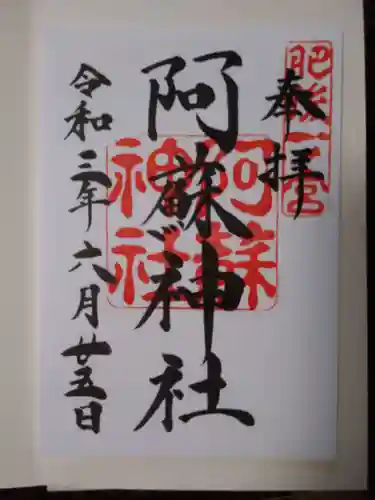 奉拝
肥後一之宮
阿蘇神社
阿蘇神社
令和三年六月廿五日